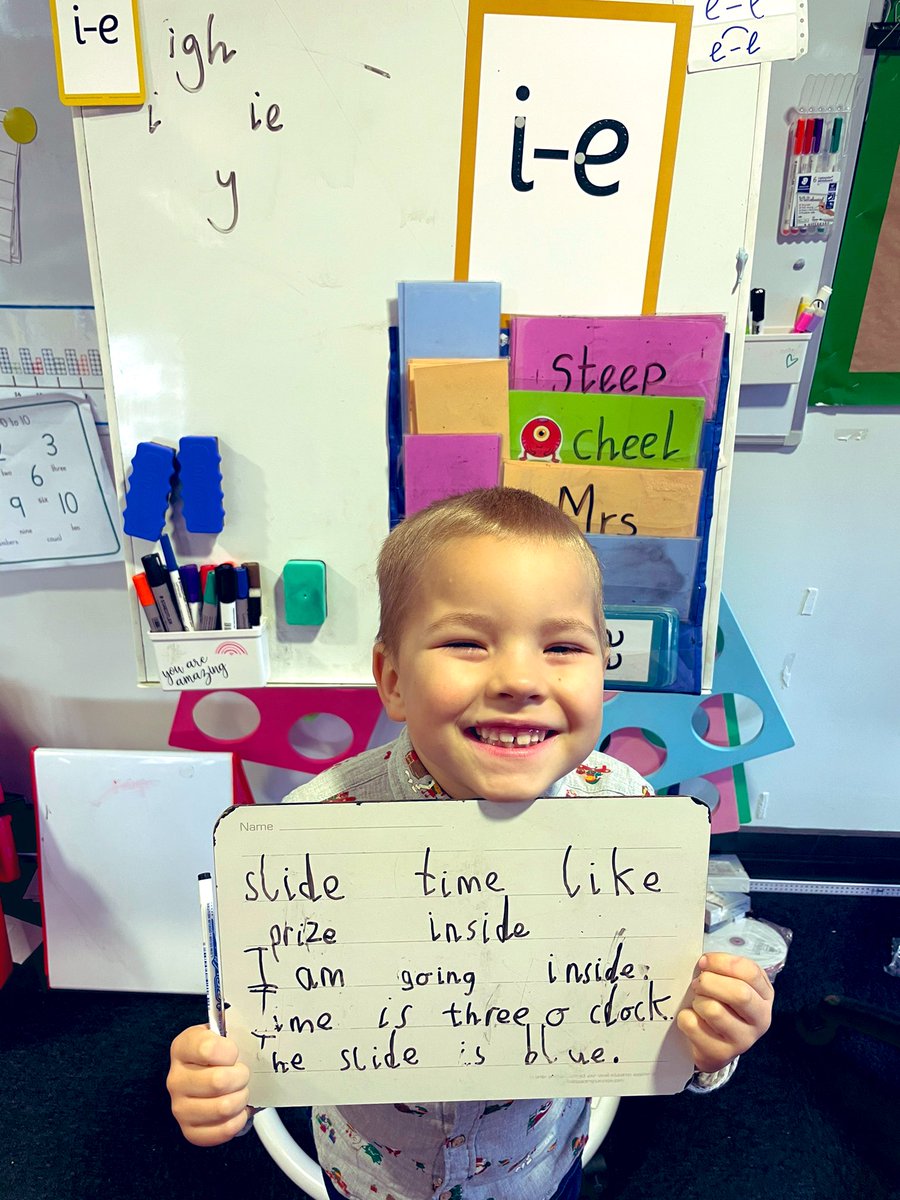 i-e
igh
i ie
y
i-e
e-e
e-e
steep
cheel
Mrs
you are
amazing
3
three
6
six
9
nine
10
ten
numbers
count
Name
slide time like
prize inside
I am going inside.
Time is three o clock.
The slide is blue.